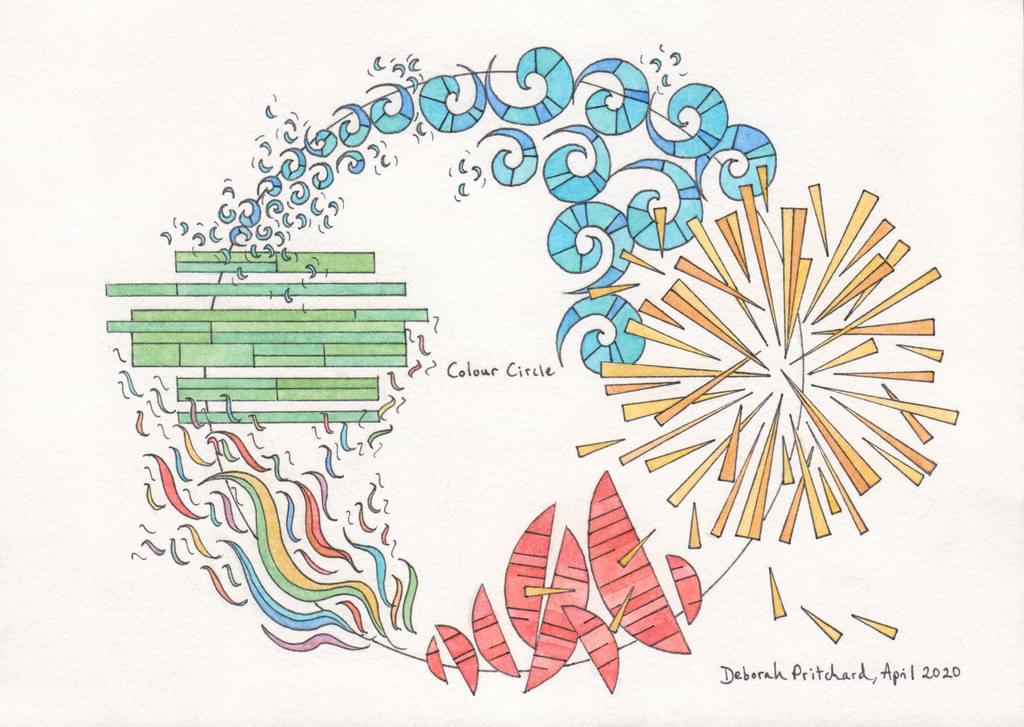 Colour Circle
Deborah Pritchard, April 2020